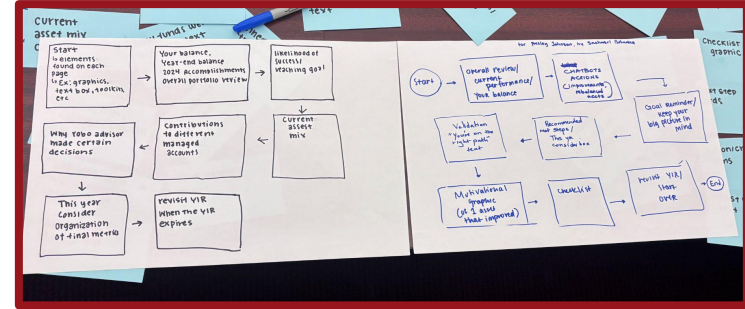 Current
asset mix
text
Start
↳ elements
found on each
page
↳ Ex: graphics,
text box, toolkits,
etc
Your balance,
Year-end balance
2024 Accomplishments
Overall portfolio review
Likelihood of
success/
reaching goal
Why robo advisor
made certain
decisions
Contributions
to different
managed
accounts
Current
asset
mix
This year
Consider
Organization
of final metrics
revisit YIR
When the YIR
expires
for Presley Johnson, by
Start
Overall review/
current
performance/
your balance
CHATBOTS
ACTIONS
(improvements,
rebalanced
assets)
Goal reminder/
keep your
big picture in
mind
Recommended
next steps/
This yr
consider box
Validation
"You're on the
right path"
text
Motivational
graphic
(of 1 asset
that improved)
Checklist
revisit YIR/
Start
over
End
Checklist
graphic